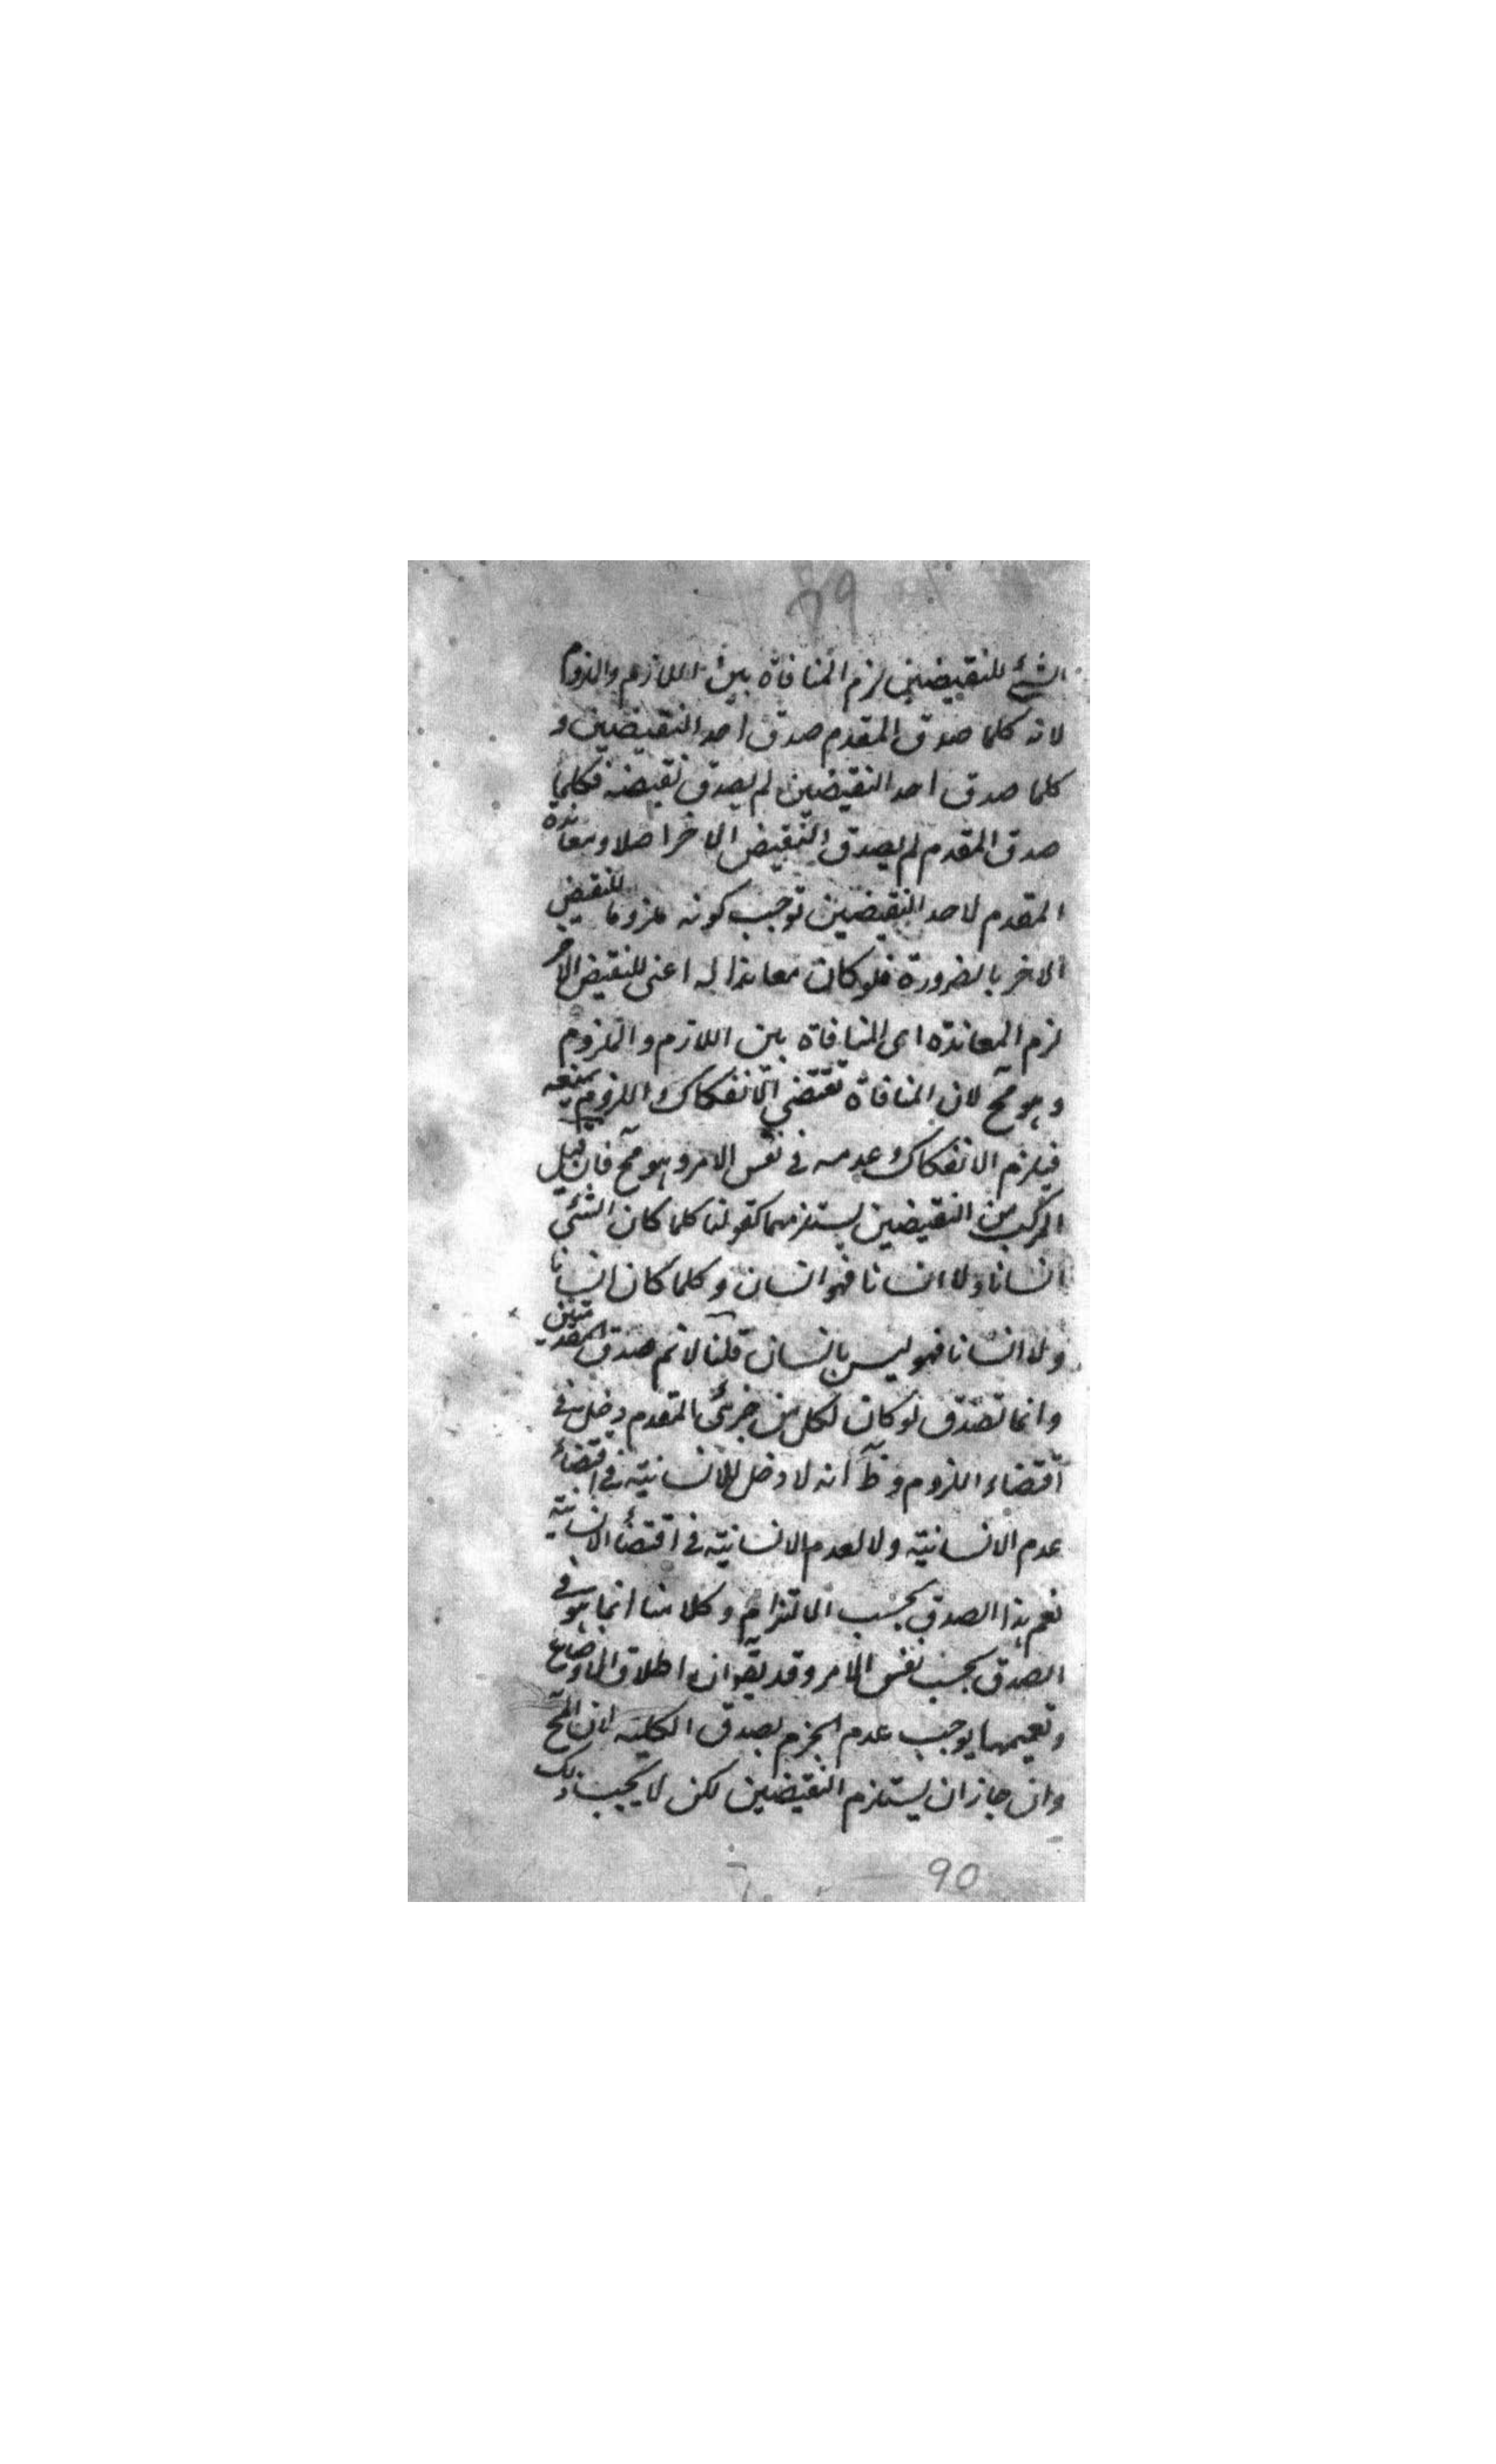 89
الشئ للنقيضين لزم المنافاة بين اللازم والملزوم
لانه كلما صدق المقدم صدق احد النقيضين و
كلما صدق احد النقيضين لم يصدق نقيضه فكلما
صدق المقدم لم يصدق النقيض الاخر اصلا ومعاندة
المقدم لاحد النقيضين توجب كونه ملزوما للنقيض
الاخر بالضرورة فلو كان معاندا له اعنى للنقيض الاخر
لزم المعاندة اى المنافاة بين اللازم والملزوم
وهو مح لان المنافاة تقتضى الانفكاك واللزوم يمنعه
فيلزم الانفكاك وعدمه فى نفس الامر وهو مح فان قيل
المركب من النقيضين يستلزمهما كقولنا كلما كان الشئ
انسانا ولا انسانا فهو انسان وكلما كان انسانا
ولا انسانا فهو ليس بانسان قلنا لا نم صدق المقدمتين
وانما تصدق لو كان لكل من جزئى المقدم دخل فى
اقتضاء اللزوم وظ انه لا دخل للانسانية فى اقتضاء
عدم الانسانية ولا لعدم الانسانية فى اقتضاء الانسانية
نعم هذا الصدق بحسب الالتزام وكلامنا انما هو فى
الصدق بحسب نفس الامر وقد يقو ان اطلاق الاوضاع
وتعميمها يوجب عدم الجزم بصدق الكلية لان المح
وان جاز ان يستلزم النقيضين لكن لا يجب ذلك
90